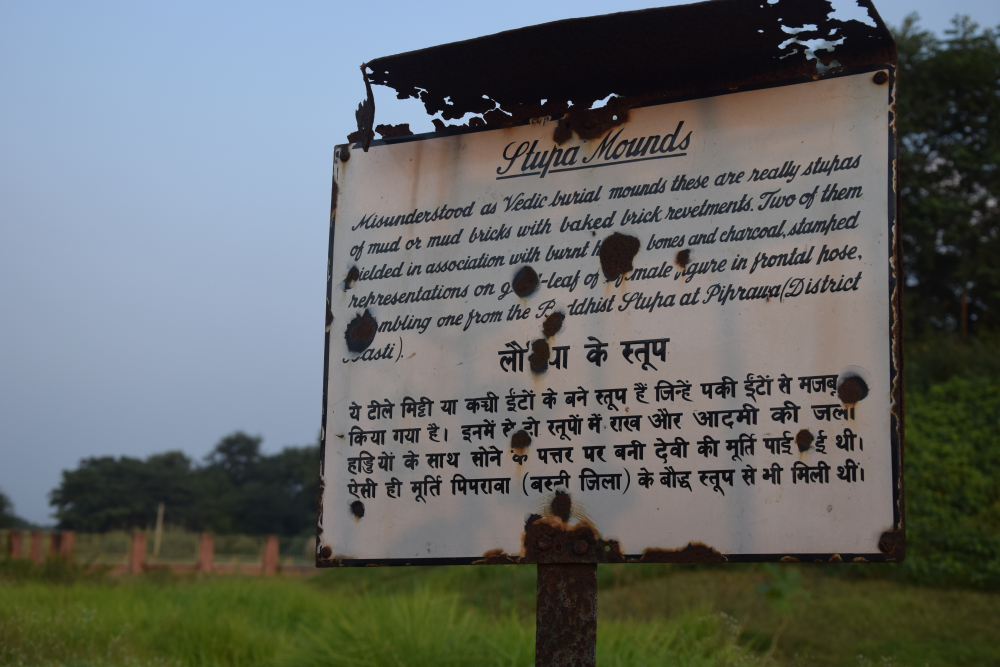 Stupa Mounds
Misunderstood as Vedic burial mounds these are really stupas
of mud or mud bricks with baked brick revetments. Two of them
in association with burnt bones and charcoal, stamped
representations on -leaf of in frontal hose,
one from the Stupa at Piprawa (District
के स्तूप
ये टीले मिट्टी या कच्ची ईंटों के बने स्तूप हैं जिन्हें पकी ईंटों से
किया गया है। इनमें स्तूपों में राख और आदमी की जली
हड्डियों के साथ सोने के पत्तर पर बनी देवी की मूर्ति पाई थी।
ऐसी ही मूर्ति पिपरावा (बस्ती जिला) के बौद्ध स्तूप से भी मिली थी।